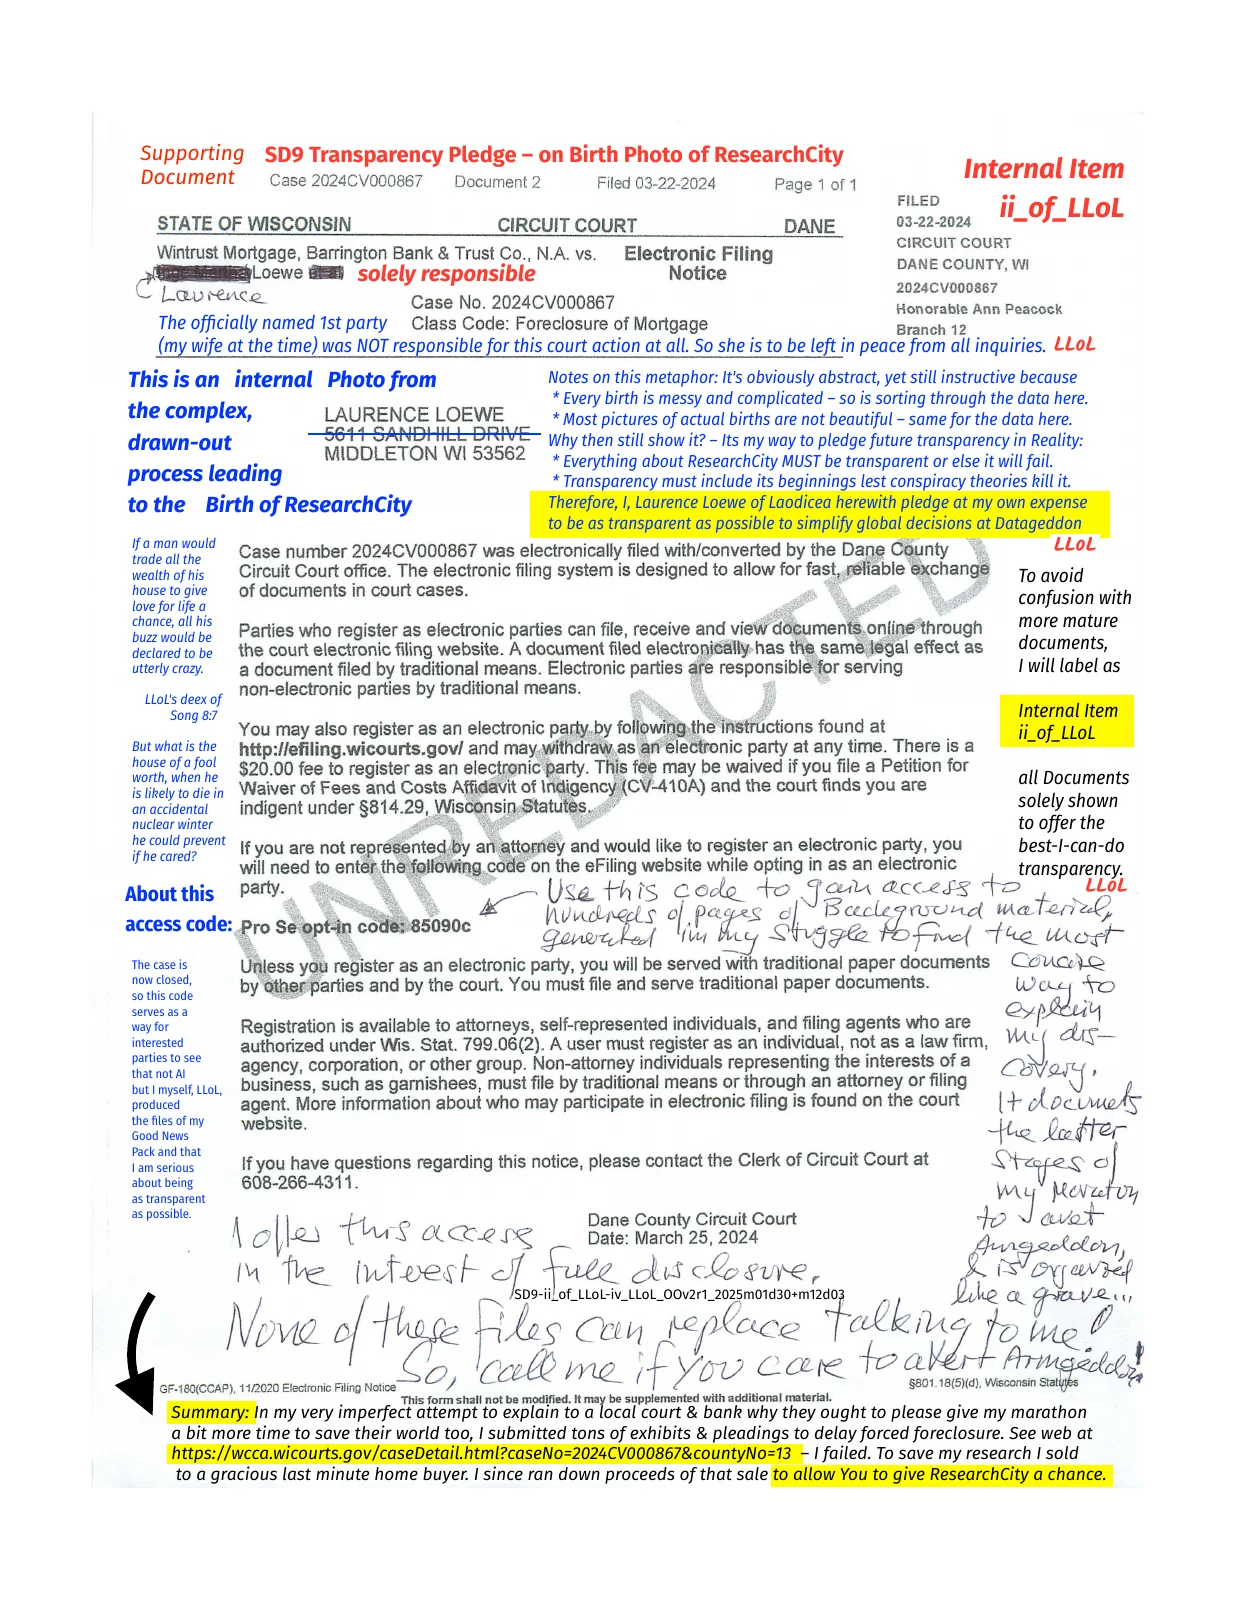 Supporting
Document
SD9 Transparency Pledge – on Birth Photo of ResearchCity
Internal Item
ii_of_LLoL
Case 2024CV000867 Document 2 Filed 03-22-2024 Page 1 of 1
FILED
03-22-2024
CIRCUIT COURT
DANE COUNTY, WI
2024CV000867
Honorable Ann Peacock
Branch 12
STATE OF WISCONSIN CIRCUIT COURT DANE
Wintrust Mortgage, Barrington Bank & Trust Co., N.A. vs. Electronic Filing
Loewe solely responsible Notice
Laurence
Case No. 2024CV000867
The officially named 1st party Class Code: Foreclosure of Mortgage
(my wife at the time) was NOT responsible for this court action at all. So she is to be left in peace from all inquiries. LLoL
This is an internal Photo from
the complex,
drawn-out
process leading
to the Birth of ResearchCity
LAURENCE LOEWE
5611 SANDHILL DRIVE
MIDDLETON WI 53562
Notes on this metaphor: It's obviously abstract, yet still instructive because
* Every birth is messy and complicated – so is sorting through the data here.
* Most pictures of actual births are not beautiful – same for the data here.
Why then still show it? – Its my way to pledge future transparency in Reality:
* Everything about ResearchCity MUST be transparent or else it will fail.
* Transparency must include its beginnings lest conspiracy theories kill it.
Therefore, I, Laurence Loewe of Laodicea herewith pledge at my own expense
to be as transparent as possible to simplify global decisions at Datageddon
LLoL
If a man would
trade all the
wealth of his
house to give
love for life a
chance, all his
buzz would be
declared to be
utterly crazy.
LLoL's deex of
Song 8:7
But what is the
house of a fool
worth, when he
is likely to die in
an accidental
nuclear winter
he could prevent
if he cared?
About this
access code:
The case is
now closed,
so this code
serves as a
way for
interested
parties to see
that not AI
but I myself, LLoL,
produced
the files of my
Good News
Pack and that
I am serious
about being
as transparent
as possible.
UNREDACTED
Case number 2024CV000867 was electronically filed with/converted by the Dane County
Circuit Court office. The electronic filing system is designed to allow for fast, reliable exchange
of documents in court cases.
Parties who register as electronic parties can file, receive and view documents online through
the court electronic filing website. A document filed electronically has the same legal effect as
a document filed by traditional means. Electronic parties are responsible for serving
non-electronic parties by traditional means.
You may also register as an electronic party by following the instructions found at
http://efiling.wicourts.gov/ and may withdraw as an electronic party at any time. There is a
$20.00 fee to register as an electronic party. This fee may be waived if you file a Petition for
Waiver of Fees and Costs Affidavit of Indigency (CV-410A) and the court finds you are
indigent under §814.29, Wisconsin Statutes.
If you are not represented by an attorney and would like to register an electronic party, you
will need to enter the following code on the eFiling website while opting in as an electronic
party.
Pro Se opt-in code: 85090c
Unless you register as an electronic party, you will be served with traditional paper documents
by other parties and by the court. You must file and serve traditional paper documents.
Registration is available to attorneys, self-represented individuals, and filing agents who are
authorized under Wis. Stat. 799.06(2). A user must register as an individual, not as a law firm,
agency, corporation, or other group. Non-attorney individuals representing the interests of a
business, such as garnishees, must file by traditional means or through an attorney or filing
agent. More information about who may participate in electronic filing is found on the court
website.
If you have questions regarding this notice, please contact the Clerk of Circuit Court at
608-266-4311.
Dane County Circuit Court
Date: March 25, 2024
To avoid
confusion with
more mature
documents,
I will label as
Internal Item
ii_of_LLoL
all Documents
solely shown
to offer the
best-I-can-do
transparency.
LLoL
Use this code to gain access to
hundreds of pages of Background material,
generated in my struggle to find the most
concise
way to
explain
my dis-
covery.
It documets
the latter
stages of
my Maraton
to avert
Armgeddon,
& is organized
like a grave...
I offer this access
in the interest of full disclosure.
SD9-ii_of_LLoL-iv_LLoL_OOv2r1_2025m01d30+m12d03
None of these files can replace talking to me!
So, call me if you care to avert Armgeddon!
GF-180(CCAP), 11/2020 Electronic Filing Notice §801.18(5)(d), Wisconsin Statutes
This form shall not be modified. It may be supplemented with additional material.
Summary: In my very imperfect attempt to explain to a local court & bank why they ought to please give my marathon
a bit more time to save their world too, I submitted tons of exhibits & pleadings to delay forced foreclosure. See web at
https://wcca.wicourts.gov/caseDetail.html?caseNo=2024CV000867&countyNo=13 – I failed. To save my research I sold
to a gracious last minute home buyer. I since ran down proceeds of that sale to allow You to give ResearchCity a chance.